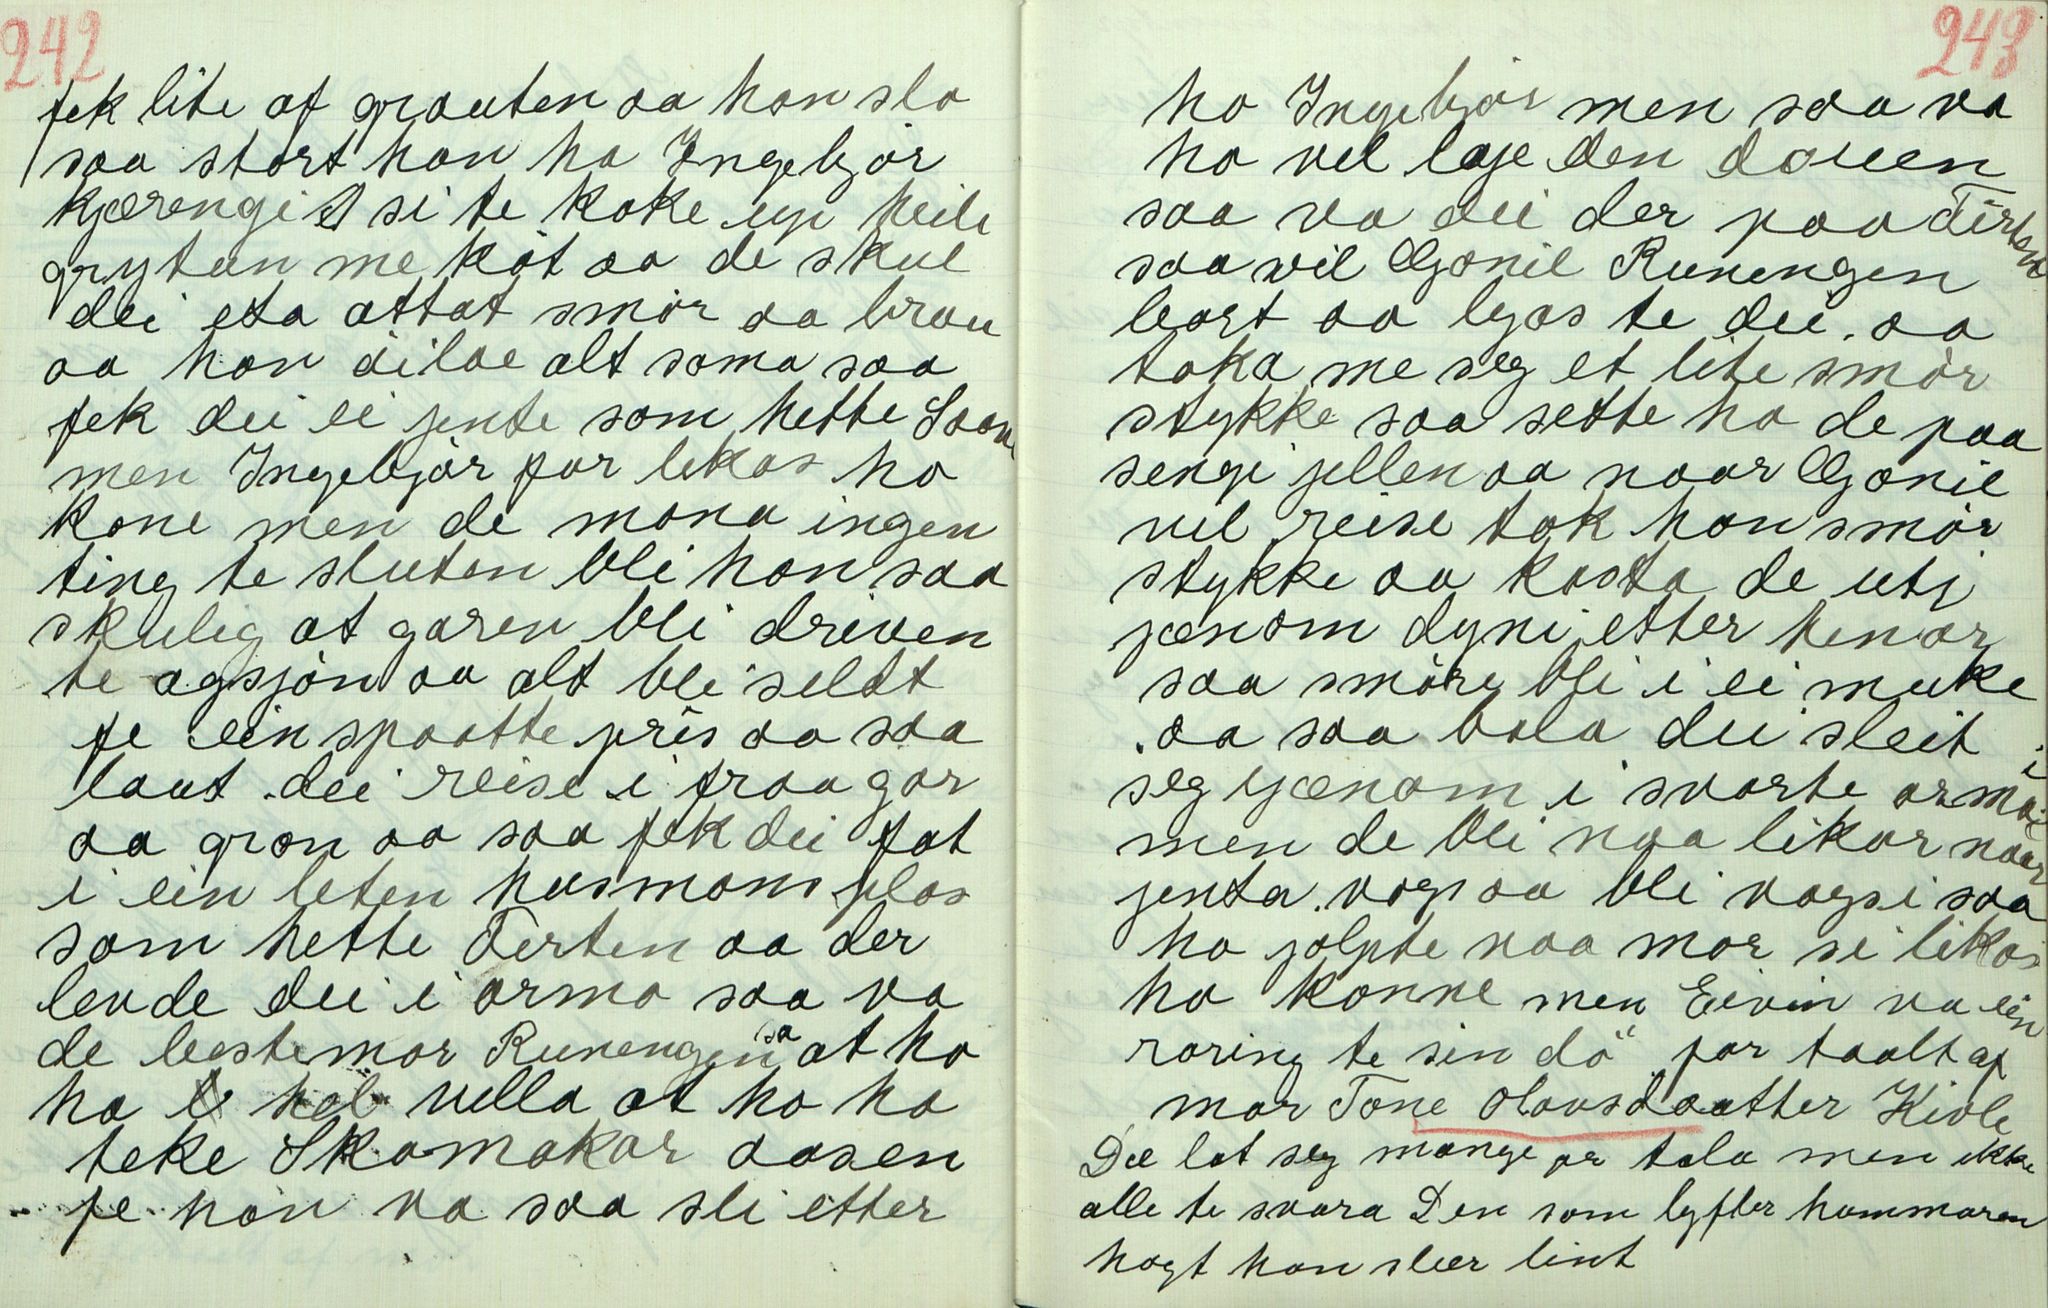 242
fek lite af grauten aa han slo
saa stort han ha Ingebjør
kjærengi si te koke up heile
grytun me køt aa de skul
dei eta attat smør aa brau
aa han ailae alt sama saa
fek dei ei jente som hette
men Ingebjør for lekas ho
kone men de mona ingen
ting te sluten blei han saa
skulig at garen bli driven
te agsjon aa alt blei seldt
fe ein spaatte pris aa saa
laut dei reise i fraa gar
aa gron aa saa fek dei fat
i ein leten husmans plas
som hette Tirten aa der
levde dei i arma saa va
de bestemor Runengen sa at ho
ha hel vella at ho ha
teke Skomakar aasen
fe han va saa sli etter
243
ho Ingebjør men saa va
ho vel laje den dauen
saa va dei der paa Tirten
saa vil Gonil Runengen
bort aa lyas te dei. aa
toka me seg et lite smør
stykke saa sette ho de paa
senge jellen aa naar Gonil
vil reise tok han smør
stykke aa kasta de uti
jænom dyni etter henar
saa smøre bli i ei muke
aa saa bala dei sleit
seg ijænom i svarte armoi
men de blei naa likar naar
jenta vogs aa bli vogsi saa
ho jolpte naa mor si likas
ho konne men Eivin va ein
roring te sin dø" for taalt af
mor Tone Olavsdaatter Kivle
Dee lat seg mange ор tala men ikkee
alle te svara Den som lyfter hammaren
høgt han sleer lint